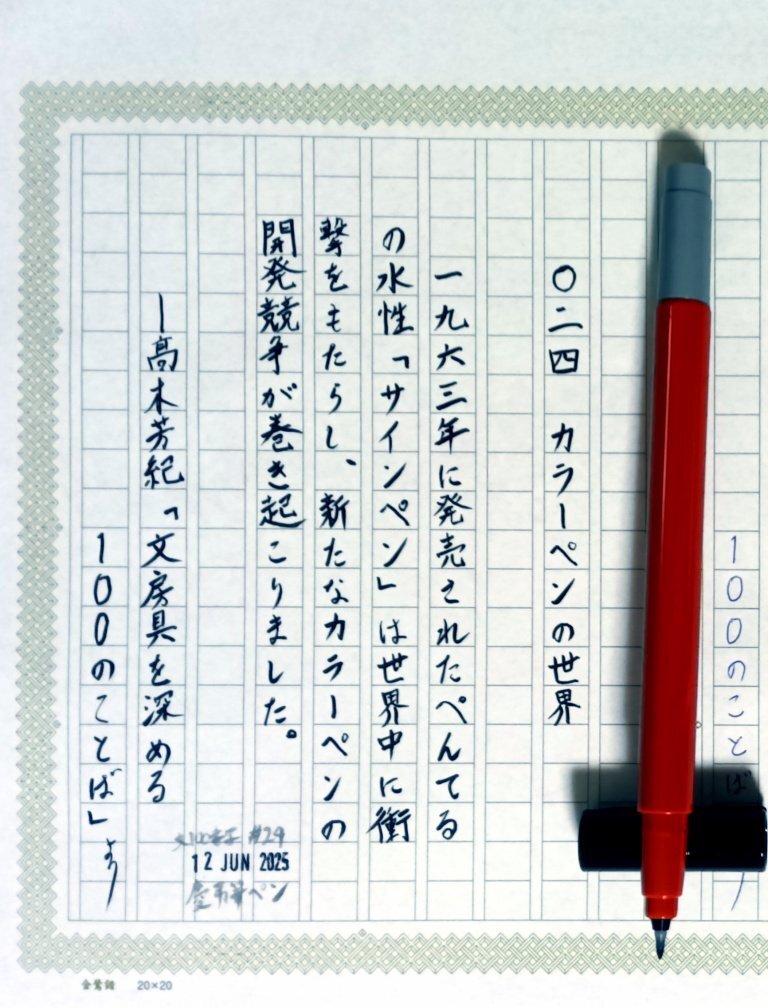 100のことば
〇二四 カラーペンの世界
一九六三年に発売されたぺんてる
の水性「サインペン」は世界中に衝
撃をもたらし、新たなカラーペンの
開発競争が巻き起こりました。
―高木芳紀「文房具を深める
100のことば」より
#29
12 JUN 2025
筆ペン
20×20